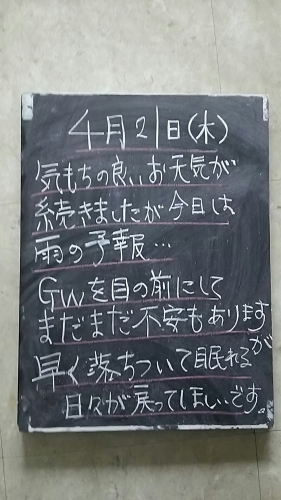 4月21日(木)
気もちの良いお天気が
続きましたが今日は
雨の予報…
GWを目の前にして
まだまだ不安もありますが
早く落ちついて眠れる
日々が戻ってほしいです。